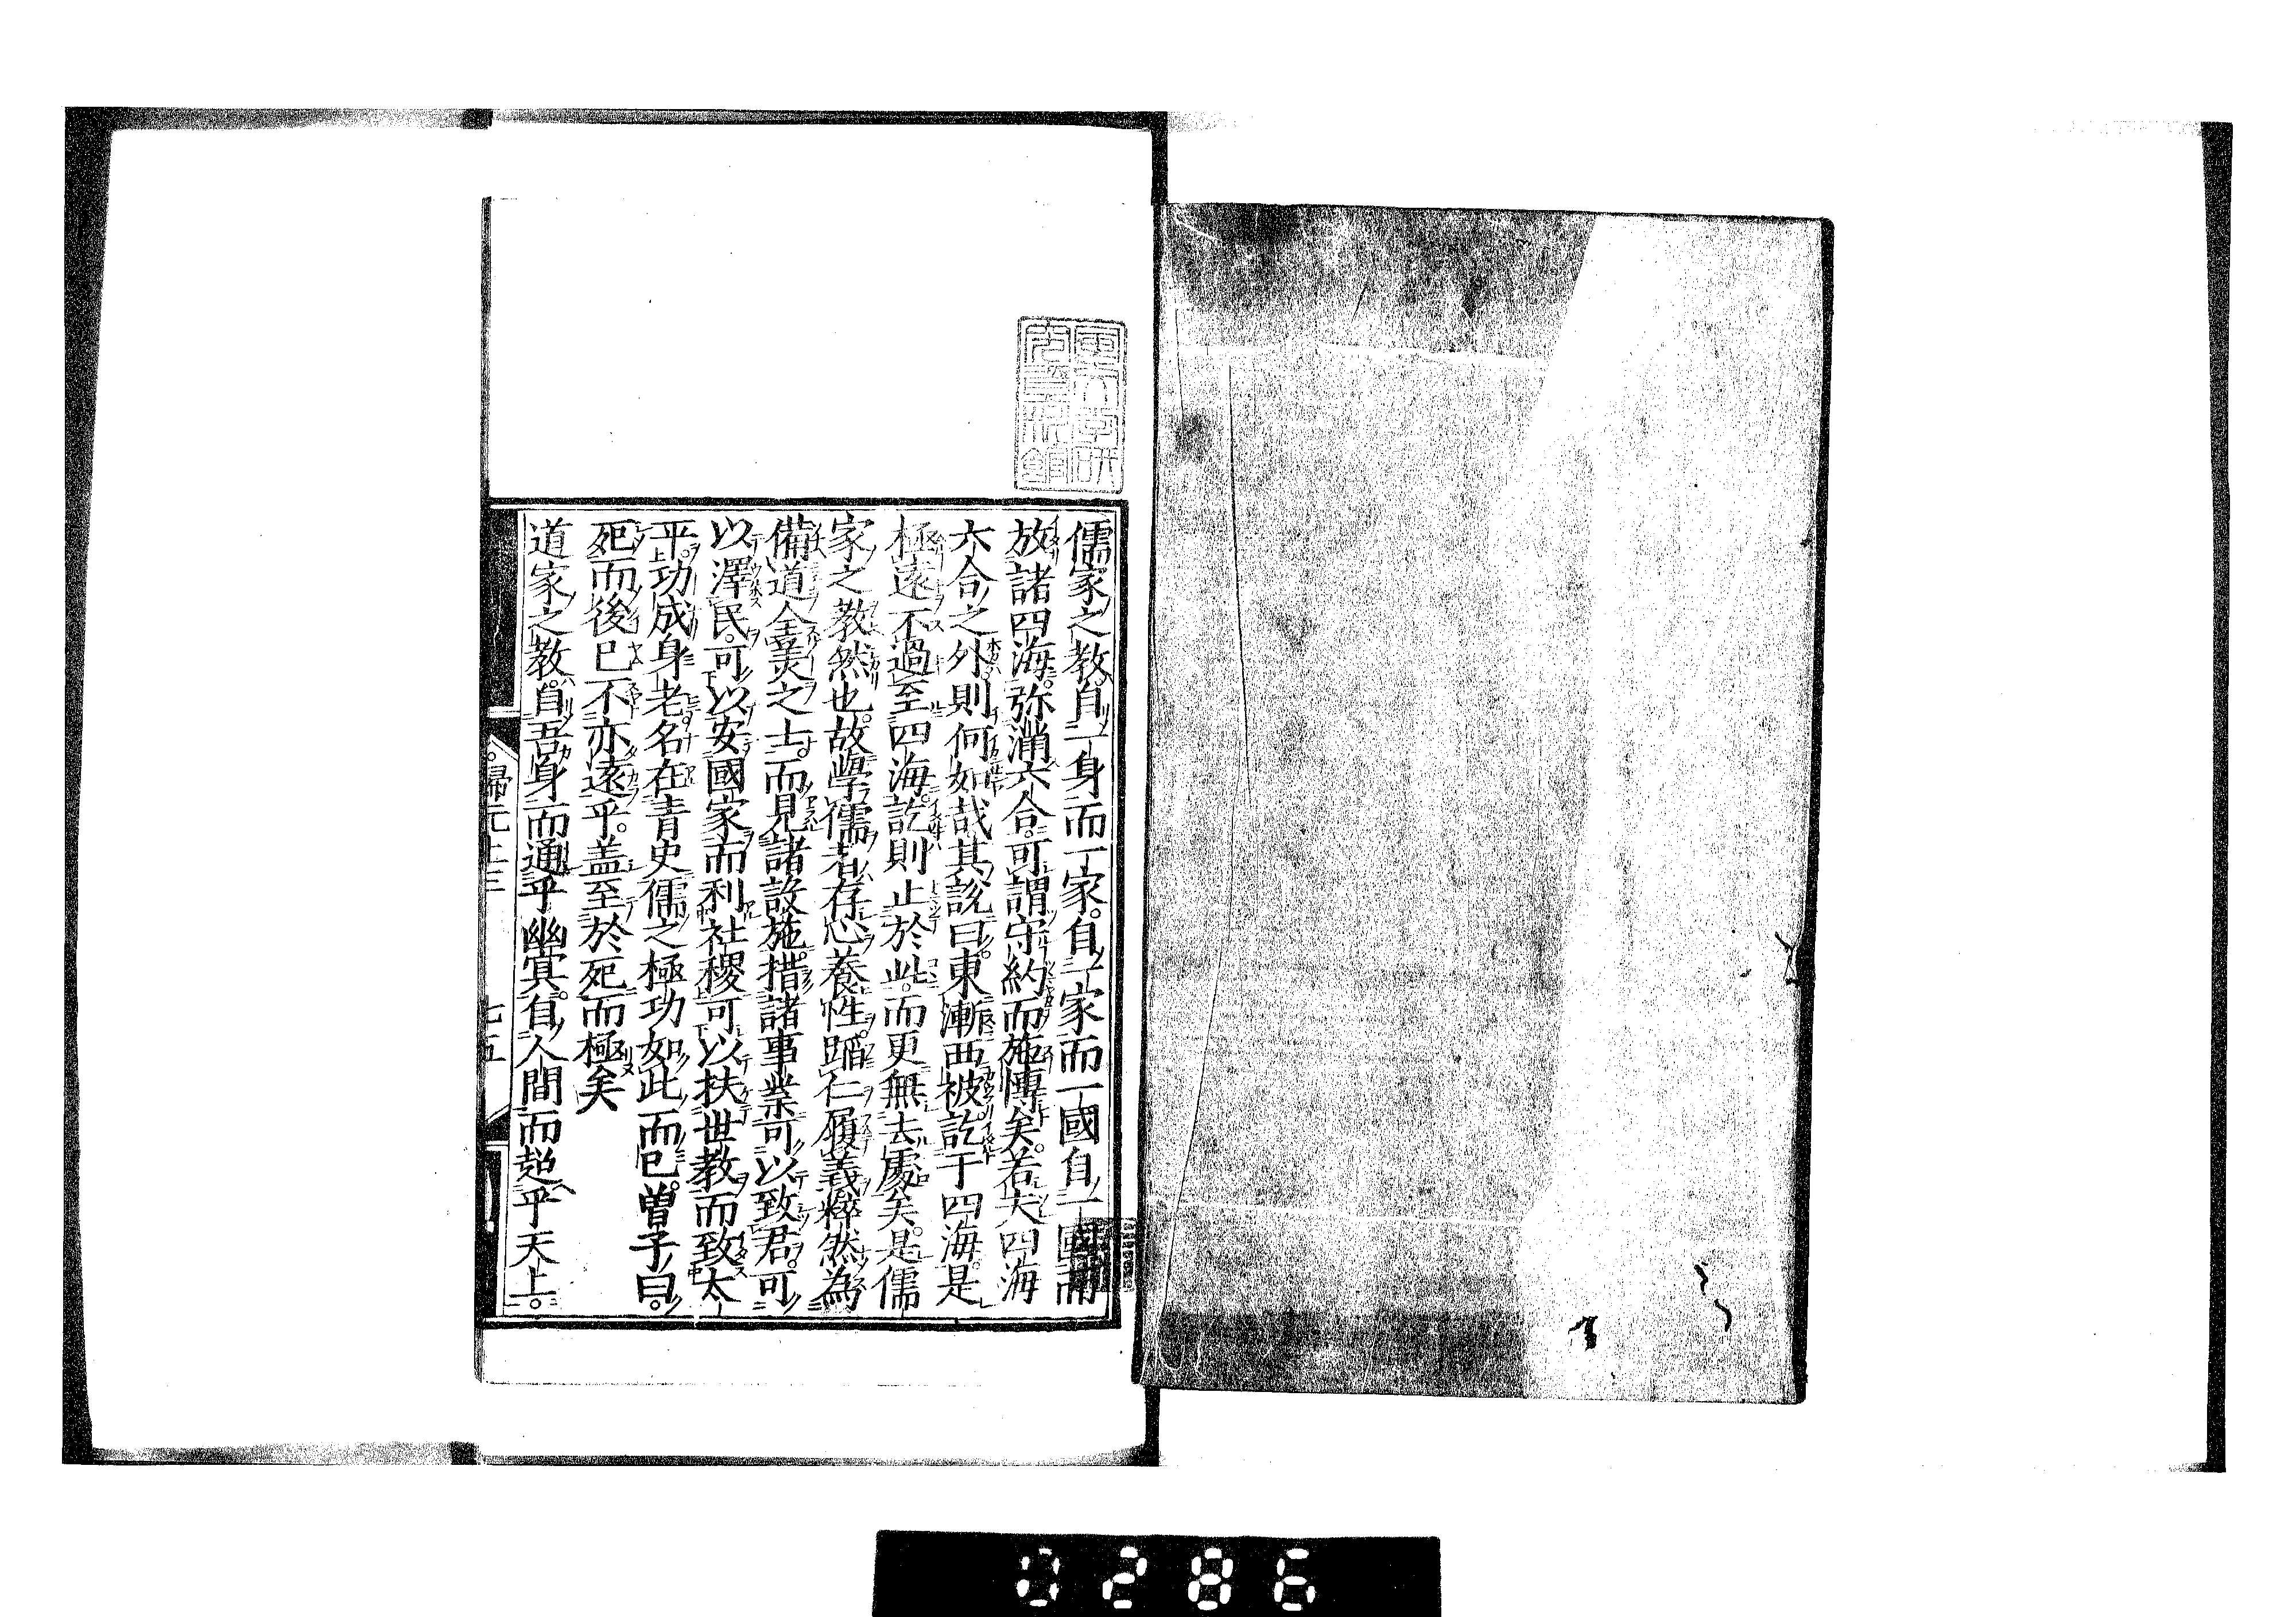 儒家之教自一身而一家自一家而一國自一國而
放諸四海弥滿六合可謂守約而施博矣若夫四海
六合之外則何如哉其說曰東漸西被訖于四海是
極遠不過至四海訖則止於此而更無去處矣是儒
家之教然也故學儒者存心養性蹈仁履義粹然為
備道全美之士而見諸設施措諸事業可以致君可
以澤民可以安國家而利社稷可以扶世教而致太
平功成身老名在青史儒之極功如此而已曽子曰
死而後已不亦遠乎盖至於死而極矣
道家之教自吾身而通乎幽冥自人間而超乎天上
歸元上三 七五
0286